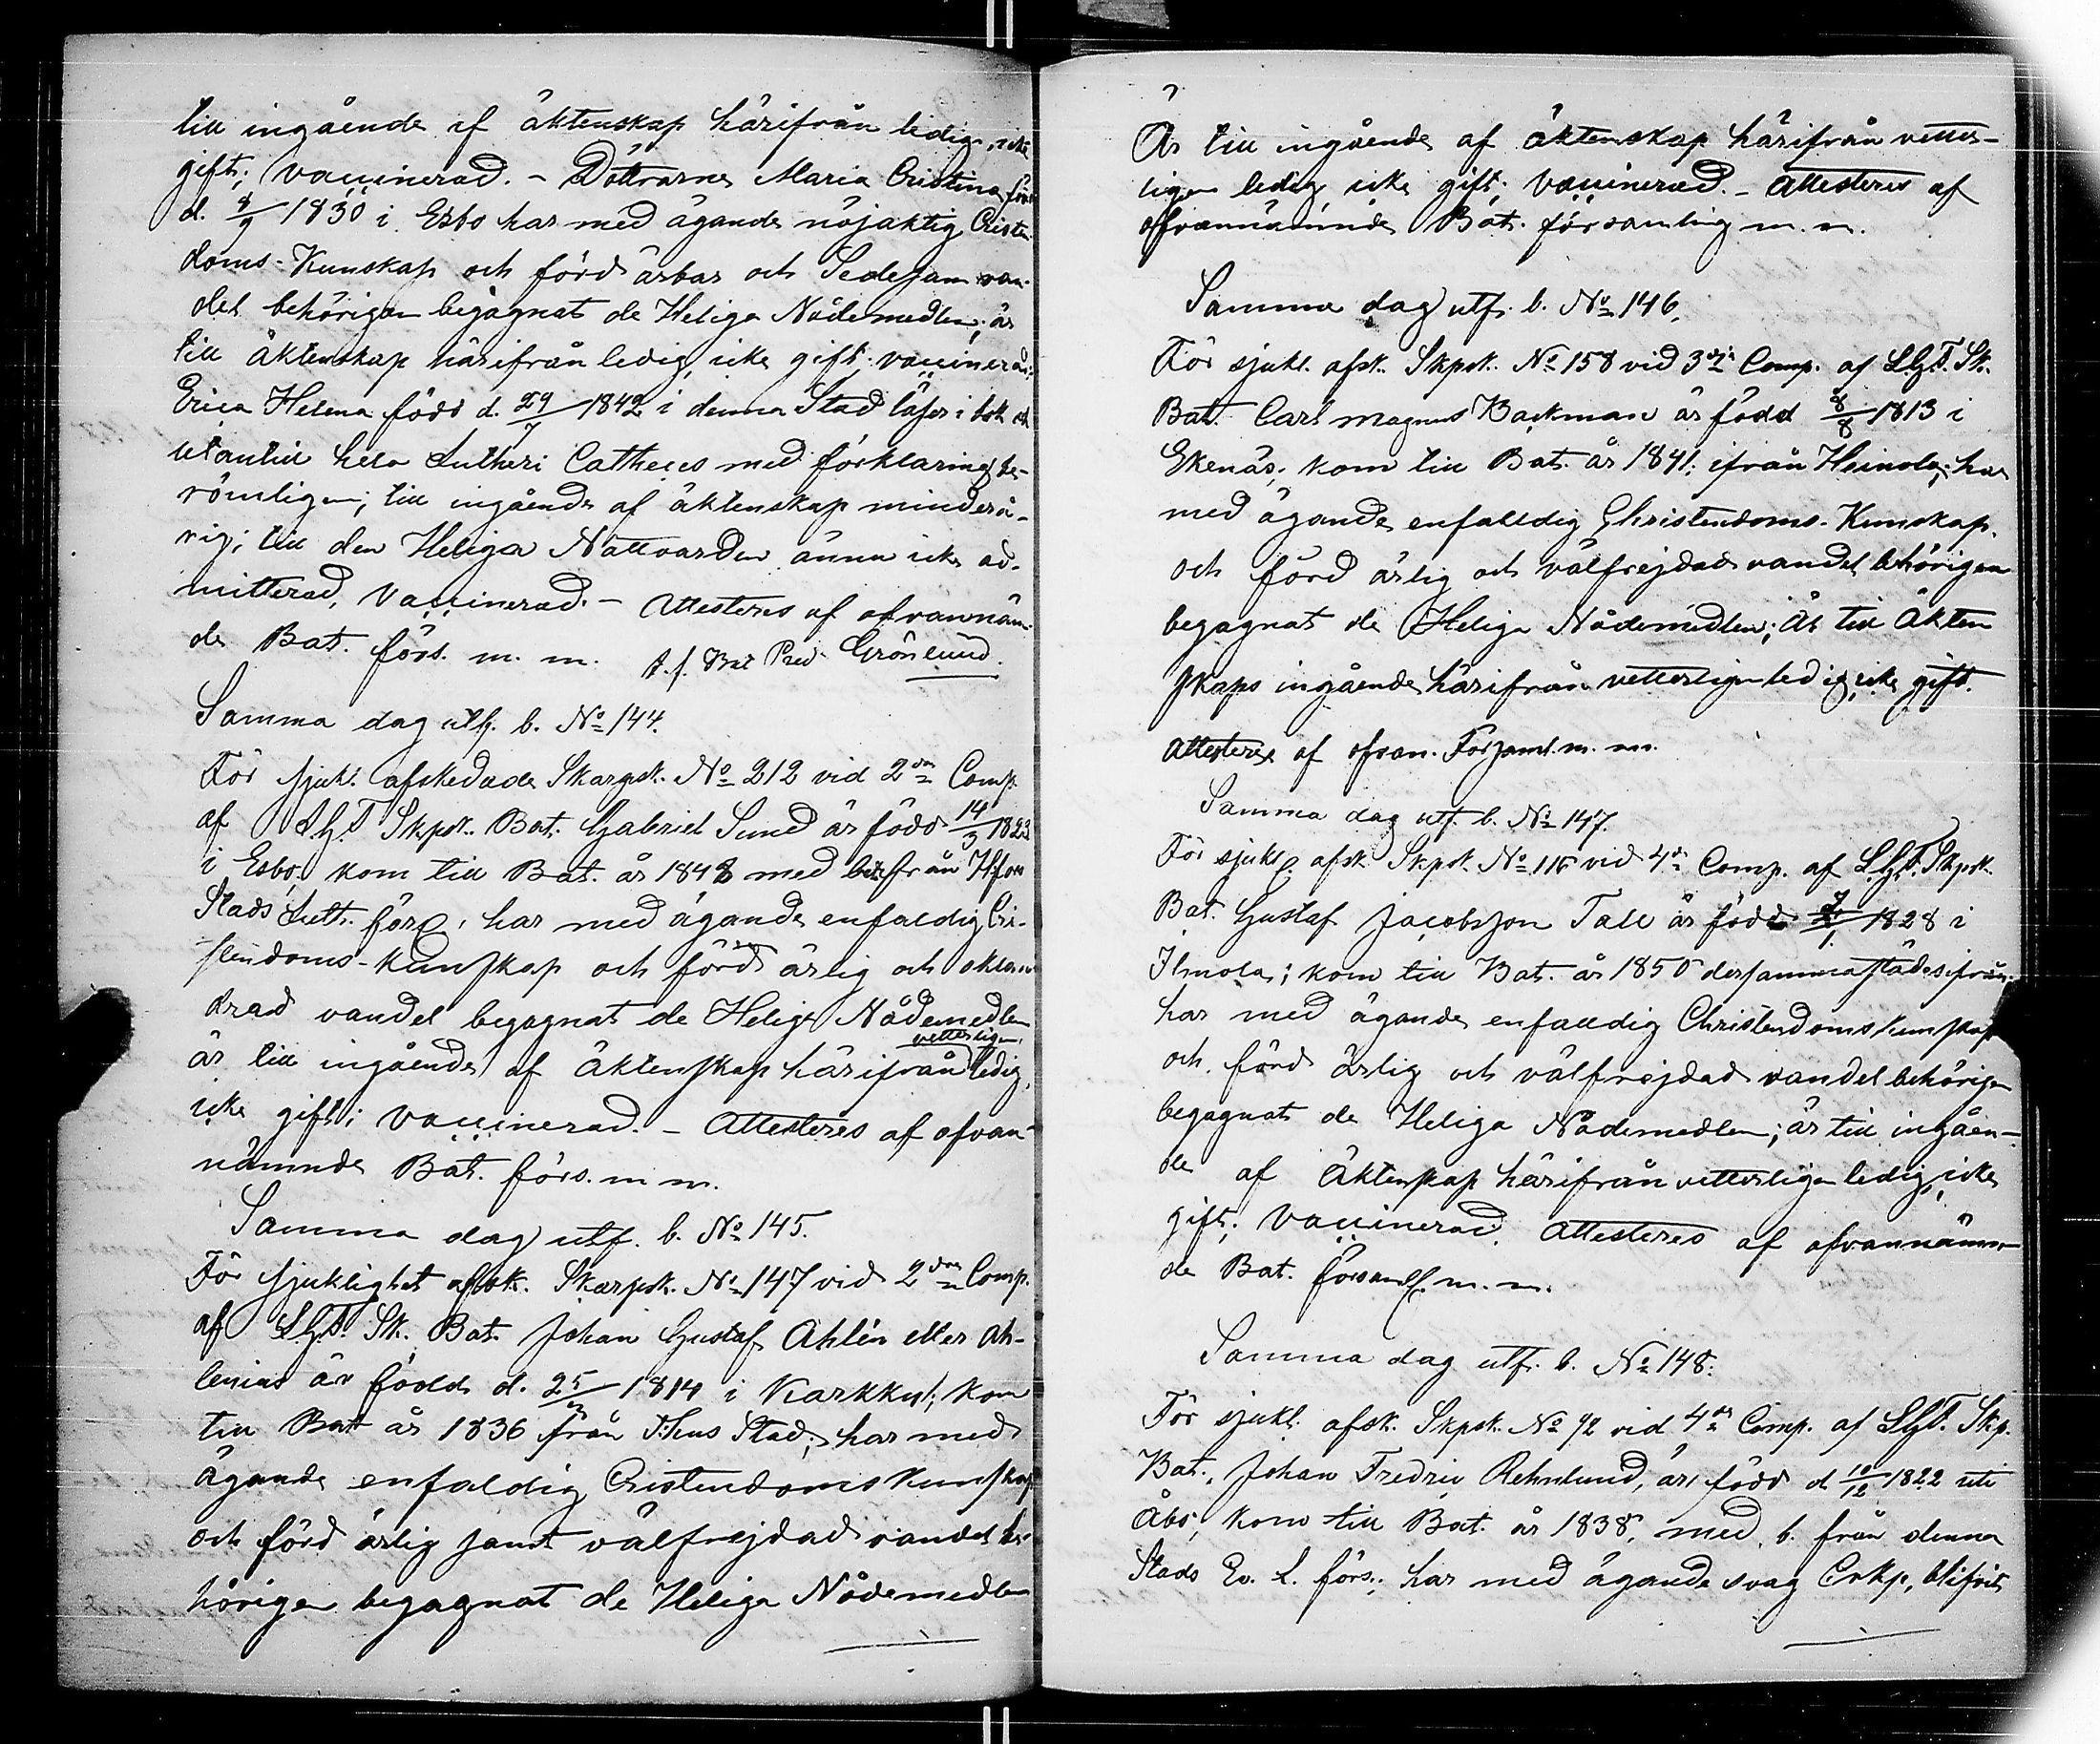 till ingående af äktenskap härifrån ledig, icke
gift; vaccinerad. - Döttrarne Maria Cristina född
d. 4/9 1830 i Esbo har med ägande nöjaktig Criste-
doms-Kunskap och förd ärbar och Sedesam van-
del behörigen begagnat de Heliga Nådemedlen; är
till äktenskap härifrån ledig, icke gift; vaccinerad;
Erica Helena född d. 29/7 1842 i denna Stad läser i bok och
utantill hela Lutheri Catheces med förklaring be-
römligen; till ingående af äktenskap minderå-
rig; till den Heliga Nattvarden ännu icke ad-
mitterad, Vaccinerad. - Attesteres af ofvannäm-
de Bat. förs. m. m. t. f. Bat Pred. Grönlund.
Samma dag utf. b. No 144.
För sjukl. afskedade Skarpsk. No 212 vid 2dra Comp.
af LGF Skpsk. Bat. Gabriel Sund är född 14/3 1823
i Esbo, kom till Bat. år 1848 med b. från Hfors
Stads Luth. förs., har med ägande enfaldig Cri-
stendoms-kunskap och förd ärlig och oklan-
drad vandel begagnat de Heliga Nådemedlen
vetterligen
är till ingående af äktenskap härifrån ledig,
icke gift; vaccinerad. - Attesteres af ofvan-
nämnde Bat. förs. m m.
Samma dag utf. b. No 145.
För sjuklighet afsk. Skarpsk. No 147 vid 2dra Comp.
af LGF. Sk. Bat. Johan Gustaf Ahlén eller Ah-
lenius är född d. 25/3 1814 i Karkku; kom
till Batt år 1836 från T:hus Stad; har med
ägande enfaldig Cristendoms kunskap
och förd ärlig samt välfrejdad vandel be-
hörigen begagnat de Heliga Nådemedlen
Är till ingående af äktenskap härifrån vetter-
ligen ledig, icke gift; Vaccinerad. - Attesteres af
ofvannämnde Bat. församling m. m.
Samma dag utf. b. No 146.
För sjukl. afsk. Skpsk. No 158 vid 3dje Comp. af LGF. Sk.
Bat. Carl Magnus Backman är född 8/8 1813 i
Ekenäs; kom till Bat. år 1841 ifrån Heinola; har
med ägande enfalldig Christendoms-Kunskap.
och förd ärlig och välfrejdad vandel behörigen
begagnat de Heliga Nådemedlen; Är till Äkten
skaps ingående härifrån vetterligen ledig, icke gift.
Attesteres af ofvan. Församl. m. m.
Samma dag utf. b. No 147.
För sjukl. afsk. Skpsk. No 116 vid 4de Comp. af LGF. Skpsk.
Bat. Gustaf Jacobsson Tall är född /1 1828 i
Ilmola; kom till Bat. år 1850 dersammastädesifrån;
har med ägande enfalldig Christendoms kunskap
och förd ärlig och välfrejdad vandel behörigen
begagnat de Heliga Nådemedlen; är till ingåen-
de af Äktenskap härifrån vetterligen ledig, icke
gift; Vaccinerad. Attesteres af ofvannämn
de Bat. församl. m. m.
Samma dag utf. b. No 148.
För sjukl. afsk. Skpsk. No 92 vid 4de Comp. af LGF. Skp.
Bat., Johan Fredric Rehnlund, är född d 10/12 1822 uti
Åbo, kom till Bat. år 1838, med b. från denna
Stads Ev. L. förs.; har med ägande svag Crkp, blifvit